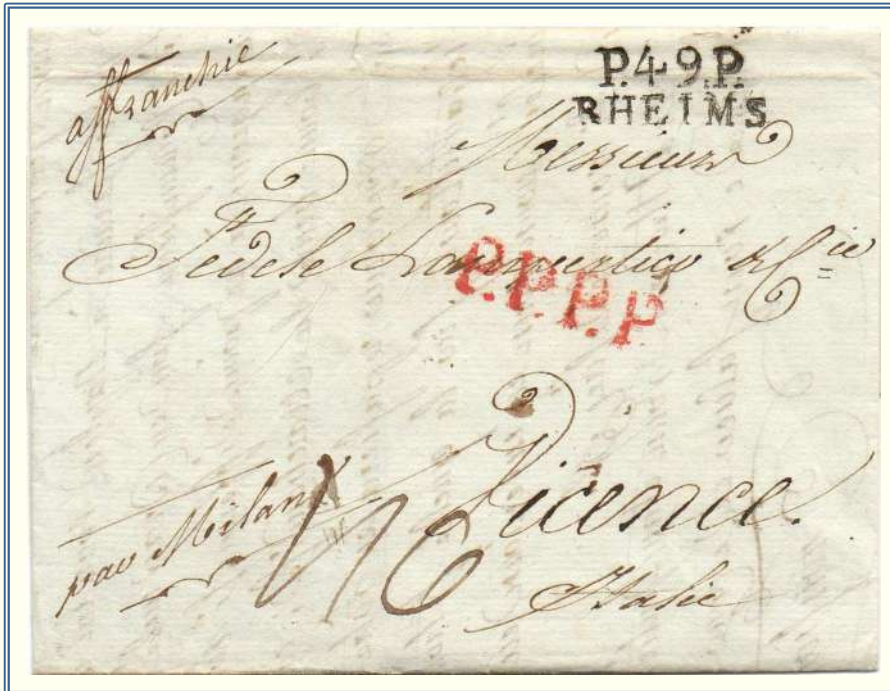 affranchie
P.4.9.P.
RHEIMS
Messieurs
Fedele Lampertico & Cie
P.P.P.P
Vicence.
par Milan
Italie